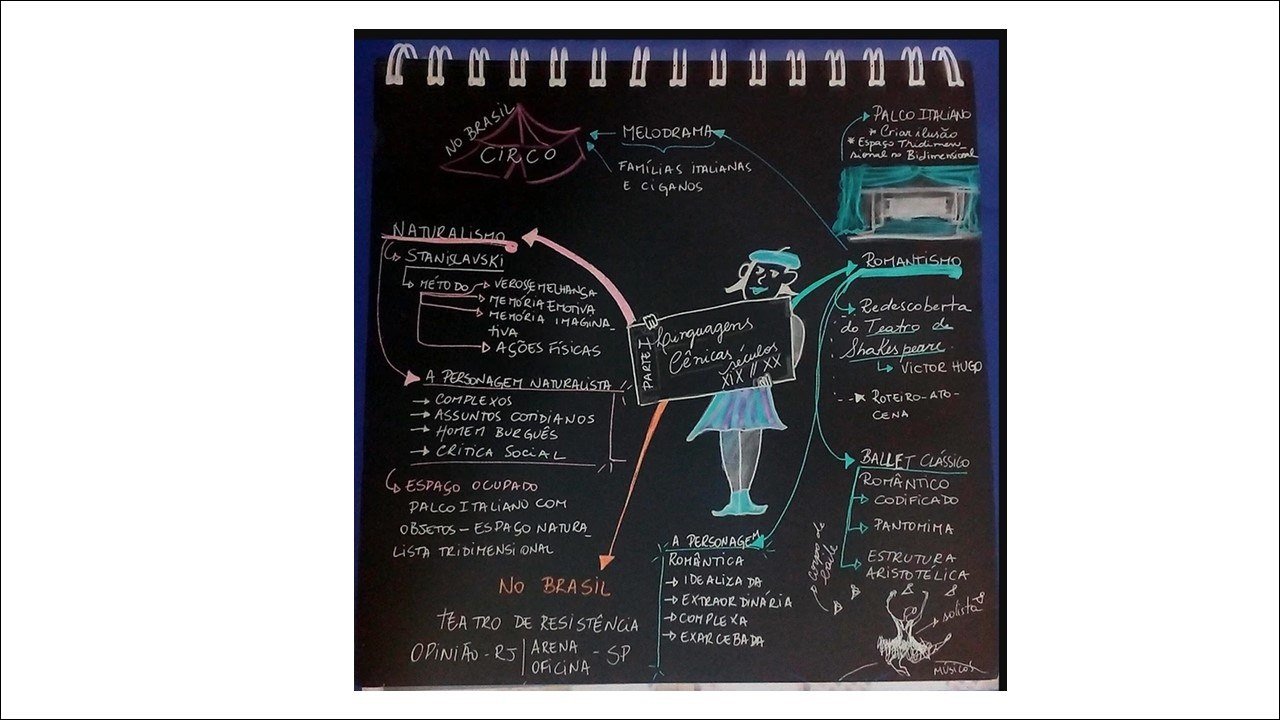 NO BRASIL
CIRCO
MELODRAMA
FAMÍLIAS ITALIANAS
E CIGANOS
PALCO ITALIANO
* Criar ilusão
* Espaço Tridimen
sional no Bidimensional
NATURALISMO
STANISLAVSKI
MÉTODO
VEROSSEMELHANÇA
MEMÓRIA EMOTIVA
MEMÓRIA IMAGINA_
TIVA
AÇÕES FÍSICAS
A PERSONAGEM NATURALISTA
COMPLEXOS
ASSUNTOS COTIDIANOS
HOMEM BURGUÊS
CRÍTICA SOCIAL
ESPAÇO OCUPADO
PALCO ITALIANO COM
OBJETOS - ESPAÇO NATURA_
LISTA TRIDIMENSIONAL
PARTE I
Linguagens
Cênicas
séculos
XIX // XX
ROMANTISMO
Redescoberta
do Teatro de
Shakespeare
VICTOR HUGO
ROTEIRO-ATO-
CENA
BALLET CLÁSSICO
ROMÂNTICO
CODIFICADO
PANTOMIMA
ESTRUTURA
ARISTOTÉLICA
o Corpo de
baile
solista
MÚSICOS
A PERSONAGEM
ROMÂNTICA
IDEALIZADA
EXTRAORDINÁRIA
COMPLEXA
EXARCEBADA
NO BRASIL
TEATRO DE RESISTÊNCIA
OPINIÃO - RJ | ARENA - SP
OFICINA